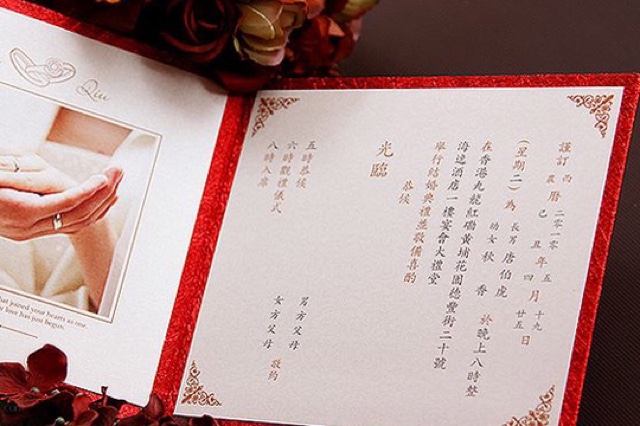 Qiu
that joined your hearts as one.
love has just begun.
謹訂 西農曆 二〇一〇己丑 年 五四 月 十九廿五 日
(星期二)為 長男 唐伯虎 幼女 秋香 於晚上八時整
在香港九龍紅磡黃埔花園德豐街二十號
海逸酒店一樓宴會大禮堂
舉行結婚典禮並敬備喜酌
恭候
光臨
男方父母
女方父母 敬約
五時恭候
六時觀禮儀式
八時入席